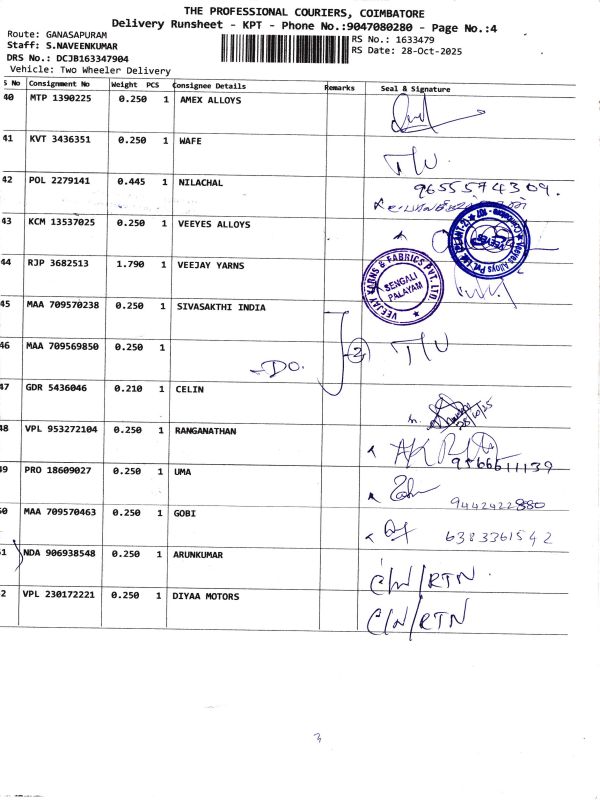 THE PROFESSIONAL COURIERS, COIMBATORE
Delivery Runsheet - KPT - Phone No.:9047080280 - Page No.:4
Route: GANASAPURAM
RS No.: 1633479
Staff: S.NAVEENKUMAR
RS Date: 28-Oct-2025
DRS No.: DCJB163347904
Vehicle: Two Wheeler Delivery
S No Consignment No Weight PCS Consignee Details Remarks Seal & Signature
40 MTP 1390225 0.250 1 AMEX ALLOYS
41 KVT 3436351 0.250 1 WAFE
T/U.
42 POL 2279141 0.445 1 NILACHAL
9655574309.
43 KCM 13537025 0.250 1 VEEYES ALLOYS
44 RJP 3682513 1.790 1 VEEJAY YARNS
VEEJAY YARNS & FABRICS PVT. LTD.
SENGALI
PALAYAM
45 MAA 709570238 0.250 1 SIVASAKTHI INDIA
46 MAA 709569850 0.250 1
-DO. 2 T/U
47 GDR 5436046 0.210 1 CELIN
28/10/25
48 VPL 953272104 0.250 1 RANGANATHAN
9566611139
49 PRO 18609027 0.250 1 UMA
9442422880
50 MAA 709570463 0.250 1 GOBI
6383361542
51 NDA 906938548 0.250 1 ARUNKUMAR
C/N/RTN.
52 VPL 230172221 0.250 1 DIYAA MOTORS
C/N/RTN
3